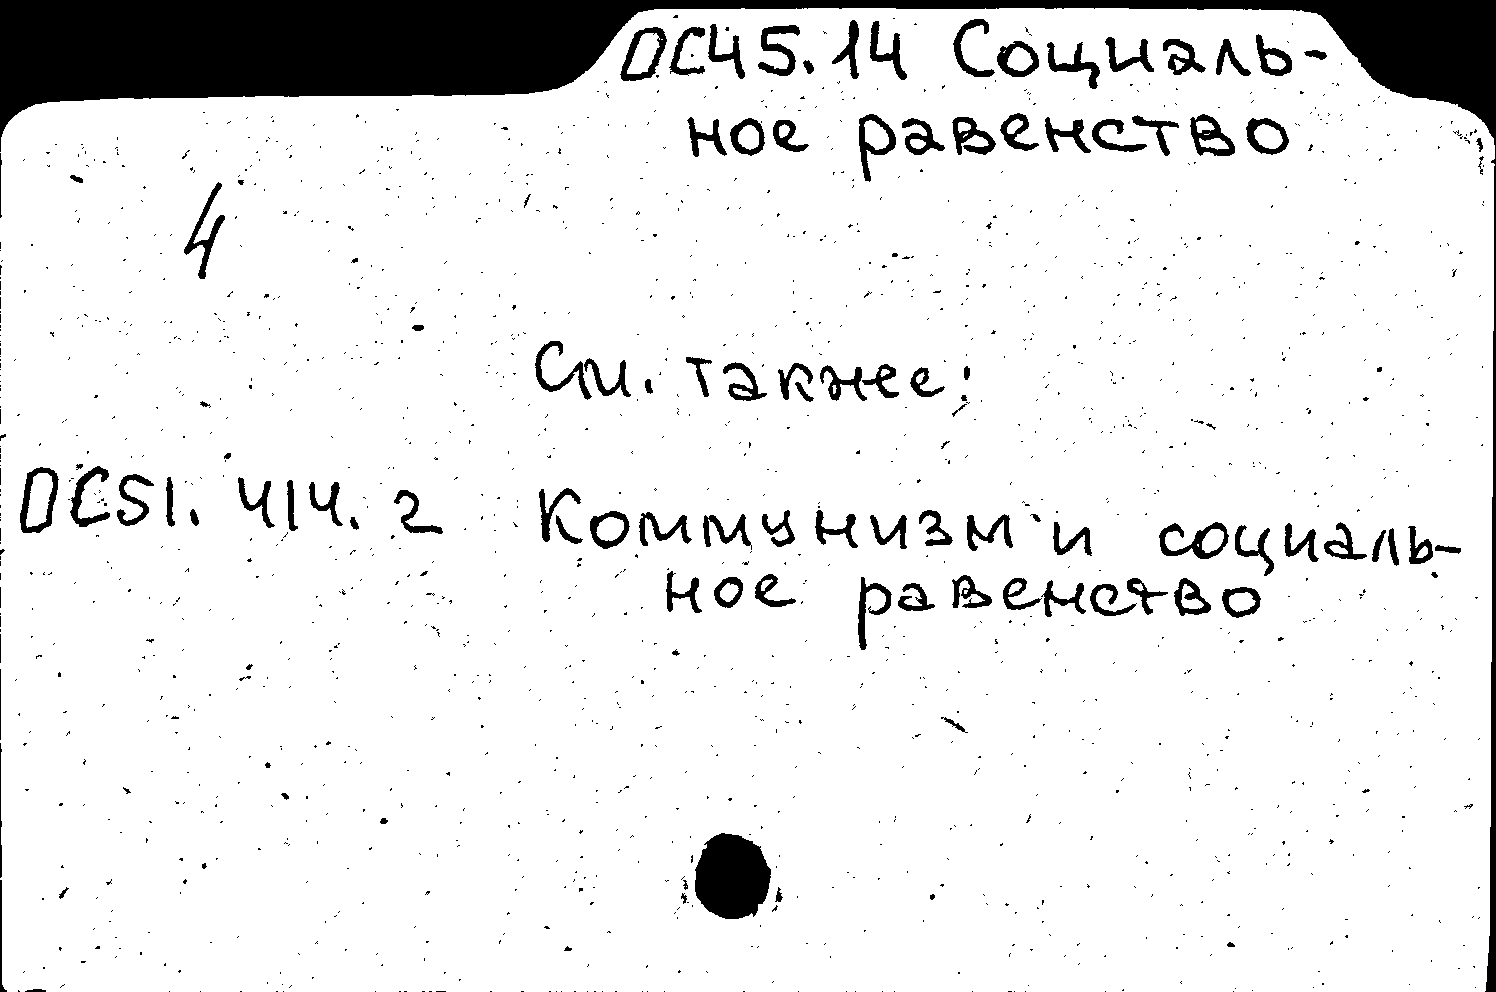 ОС45.14 Социаль-
ное равенство
4
См. также:
ОС51.414.2 Коммунизм и социаль-
ное равенство